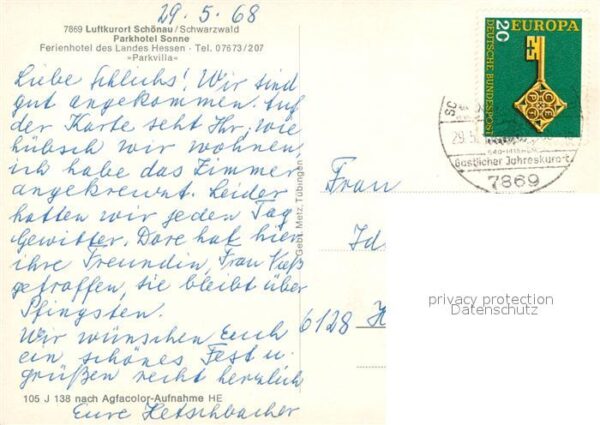 29.5.68
7869 Luftkurort Schönau/Schwarzwald
Parkhotel Sonne
Ferienhotel des Landes Hessen · Tel. 07673/207
»Parkvilla«
Liebe Schlichs! Wir sind
gut angekommen. Auf
der Karte seht Ihr, wie
hübsch wir wohnen,
ich habe das Zimmer
angekreuzt. Leider
hatten wir jeden Tag
Gewitter. Dore hat hier
ihre Freundin, Frau
getroffen, sie bleibt über
Pfingsten.
Wir wünschen Euch
ein schönes Fest u.
grüßen recht herzlich
Eure Hetschbacher
105 J 138 nach Agfacolor-Aufnahme HE
Gebr. Metz, Tübingen
EUROPA
20
DEUTSCHE BUNDESPOST
29.5.
Gastlicher Jahreskurort
7869
Frau
Id
6128 H
privacy protection
Datenschutz